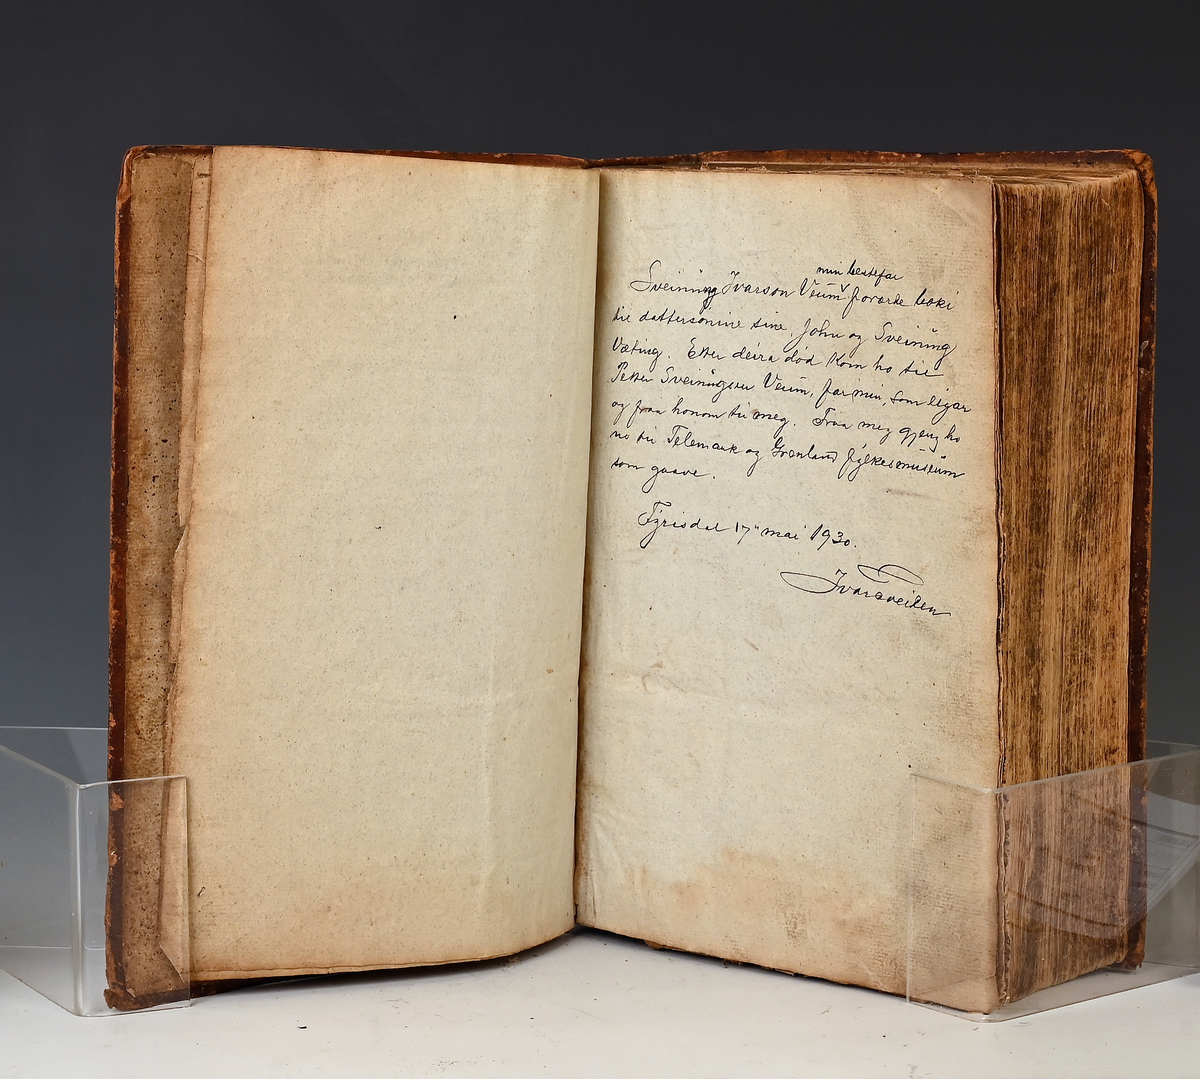 min bestefar
Sveinung Ivarson Veum forærde boki
til dattersønine sine, John og Sveinung
Væting. Etter deira død kom ho til
Petter Sveinungson Veum, far min, som eigar
og fraa honom til meg. Fraa meg gjeng ho
no til Telemark og Grenland fylkesmuseum
som gaave.
Fyrisdal 17 mai 1930.